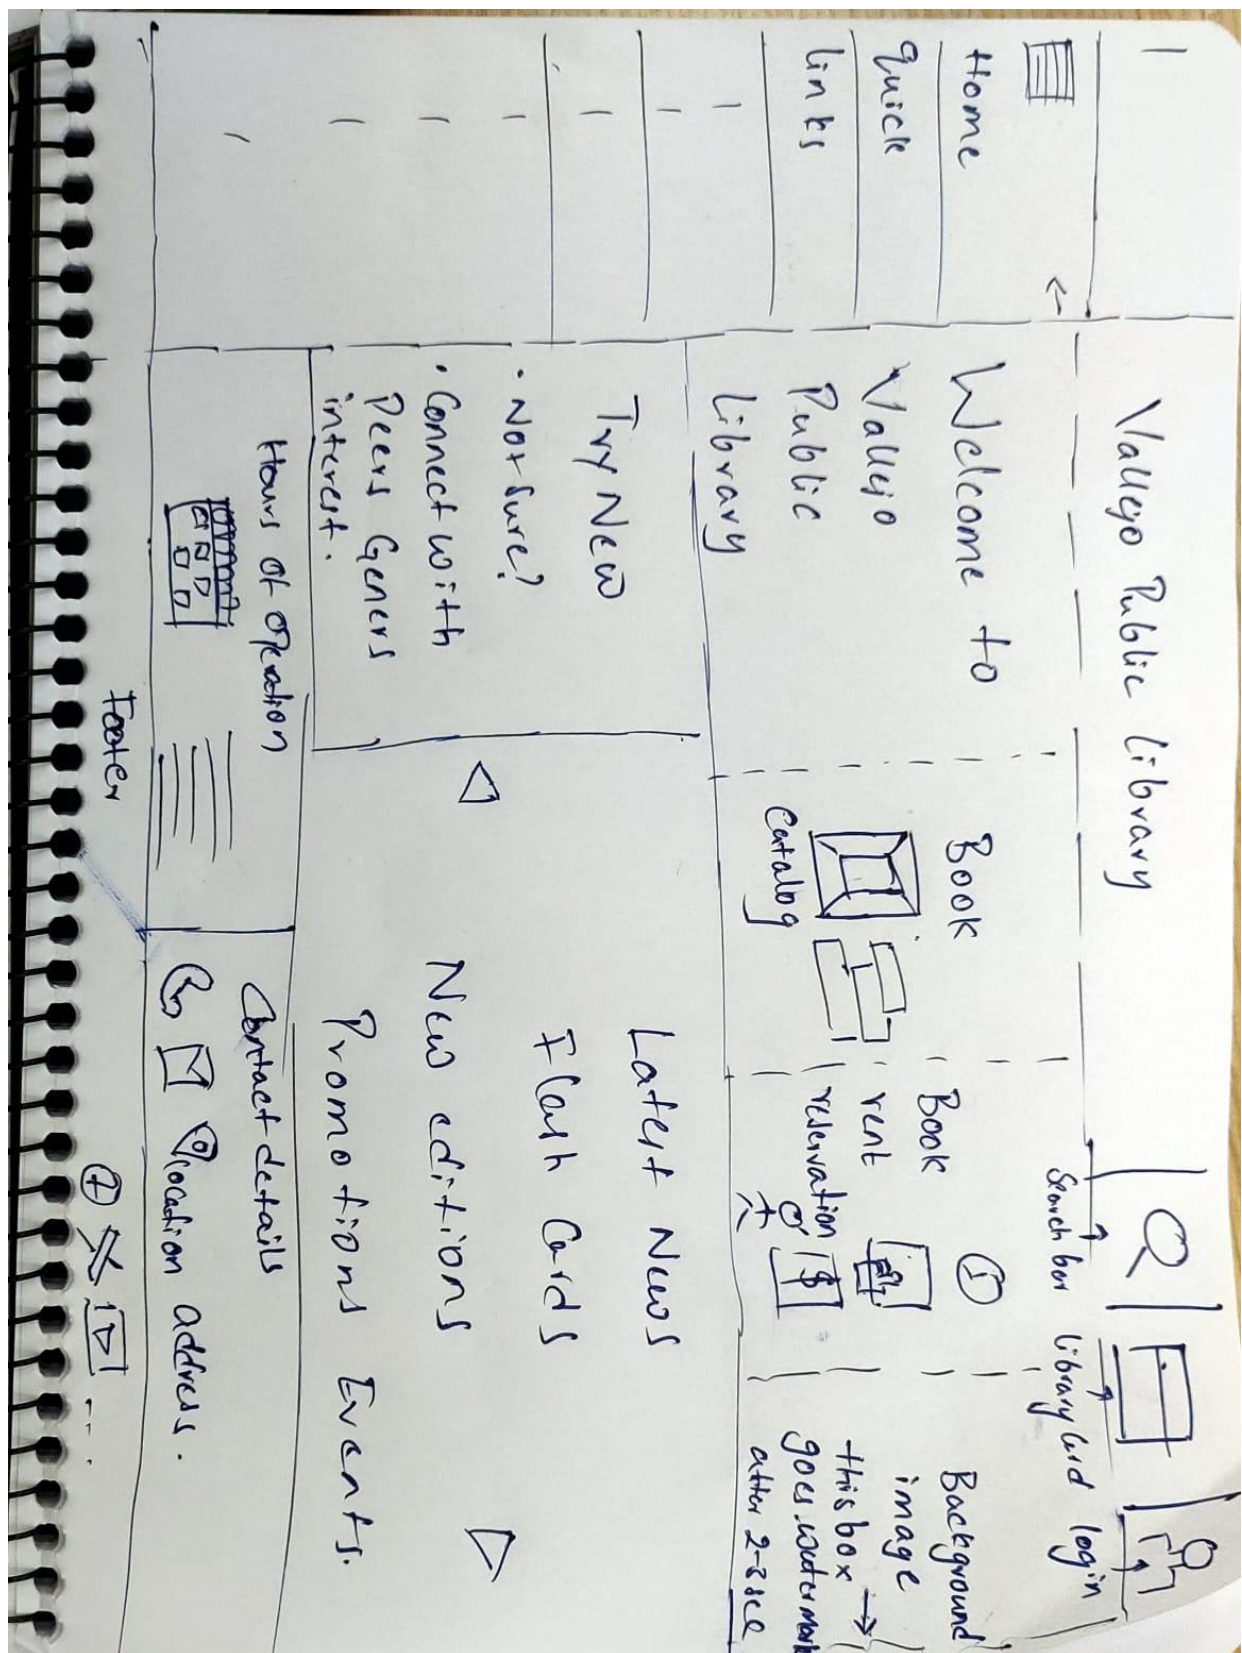 Vallejo Public library
Search bar
library card
login
Home
quick
links
Welcome to
Vallejo
Public
library
Book
catalog
Book
rent
reservation
or
$
Background
image
this box →
goes watermark
after 2-3 sec
Try New
• Not sure?
• Connect with
Peers Geners
interest.
Latest News
Flash Cards
New editions
Promotions Events.
Hours of operation
Contact details
location address.
Footer